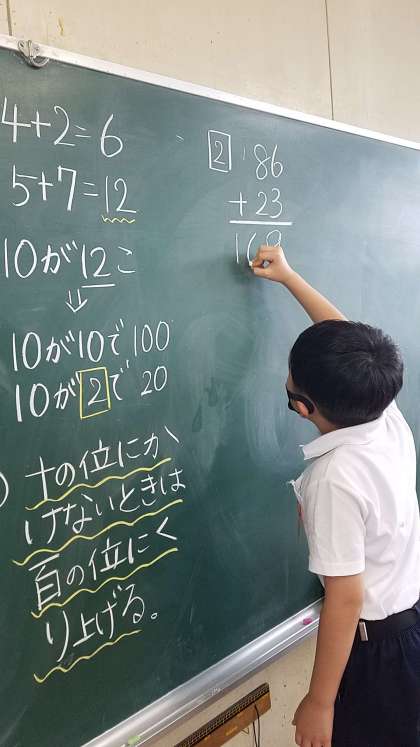 4+2=6
5+7=12
10が12こ
⇓
10が10で 100
10が2で 20
十の位にか
けないときは
百の位にく
り上げる。
2
186
+ 23
169